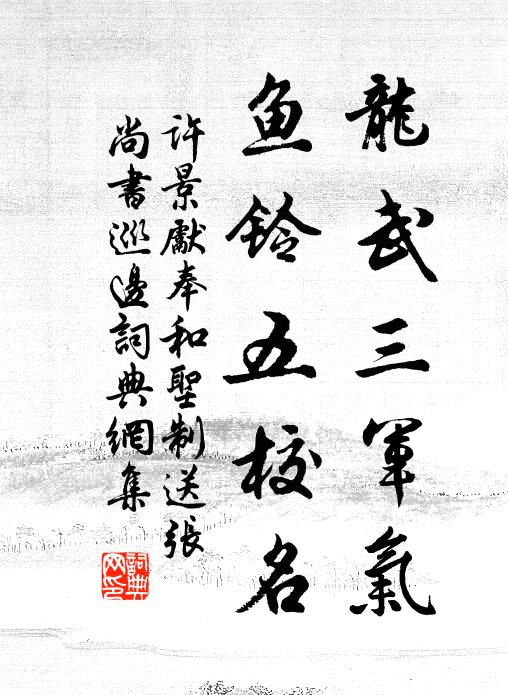 龍武三軍氣
魚鈴五校名
許景獻奉和聖制送張
尚書巡邊詞典網集
詞典
网印